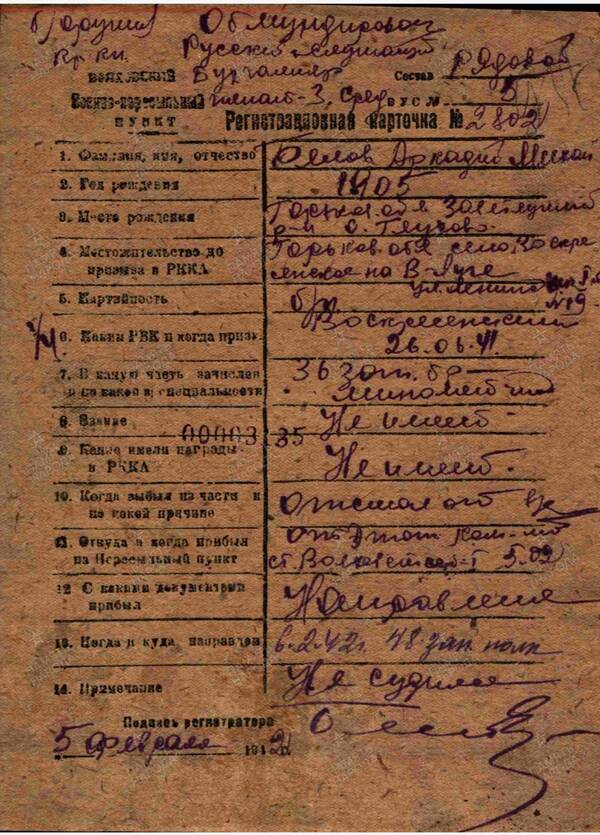 б/оружия Обмундирован
Кр кн. Русский служащий
ВОЛХОВСКИЙ Бухгалтер Состав рядовой
Военно-пересыльный 3, сред ВУС № 5
ПУНКТ Регистрационная карточка № 2802
1. Фамилия, имя, отчество Белов Аркадий Михай
2. Год рождения 1905
3. Место рождения Горьков. обл
р-н с. Глухово
4. Местожительство до Горьков. обл село Воскре
призыва в РККА сенское на Ветлуге
ул. Ленина
5. Партийность б/п. № 19
6. Каким РВК и когда призв. Воскресенский
26.06.41
7. В какую часть зачислен 36 зап. бр
и по какой в. специальности минометчик
8. Звание Не имеет
00003 35
9. Какие имели награды Не имеет.
в РККА
10. Когда выбыл из части и отстал от
по какой причине
11. Откуда и когда прибыл
на Пересыльный пункт ст. 5.02
12 С какими документами Направление
прибыл
13. Когда и куда направлен 6-2-42г. 48 зап полк
14. Примечание Не судился
Подпись регистратора
5 февраля 1942 г.